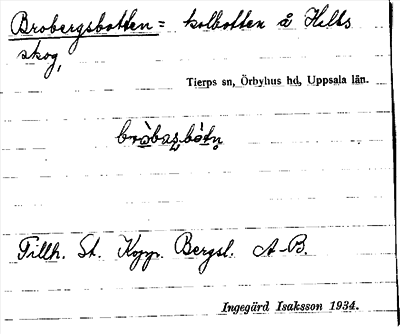 Brobergsbotten = kolbotten å Hilts
skog,
Tierps sn, Örbyhus hd, Uppsala län.
Tillh. St. Koppr. Bergsl. A-B.
Ingegärd Isaksson 1934.